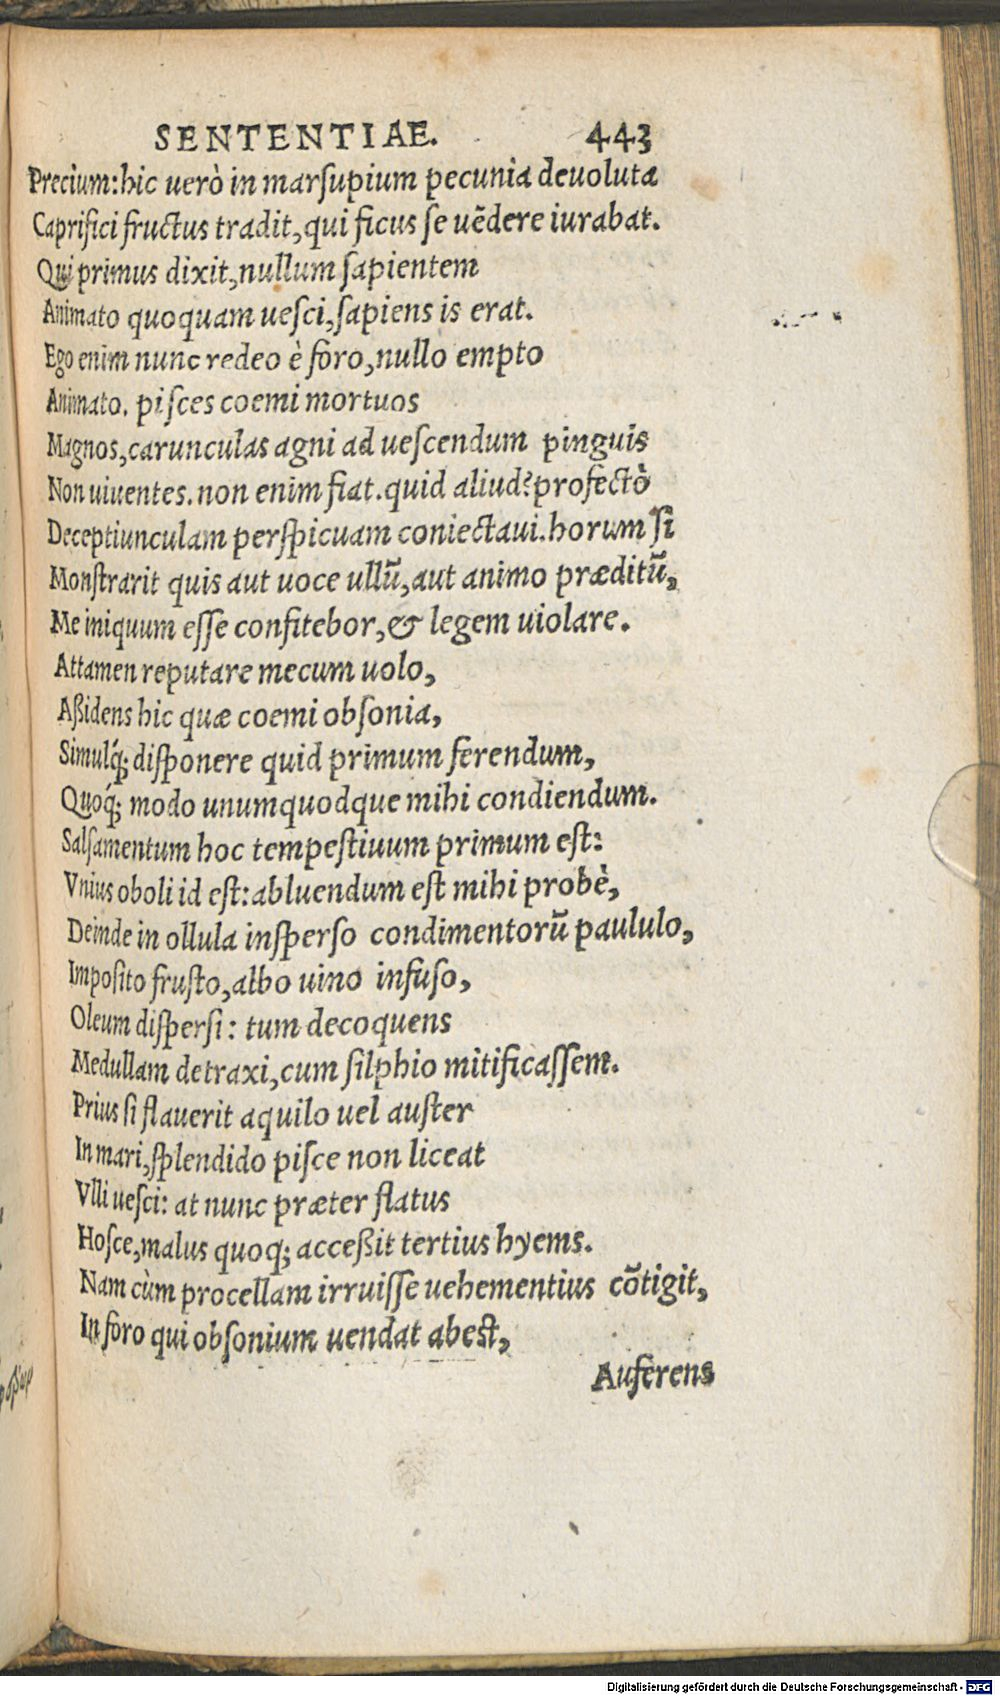 SENTENTIAE. 443
Precium: hic uerò in marsupium pecunia deuoluta
Caprifici fructus tradit, qui ficus se uẽdere iurabat.
Qui primus dixit, nullum sapientem
Animato quoquam uesci, sapiens is erat.
Ego enim nunc redeo è foro, nullo empto
Animato. pisces coemi mortuos
Magnos, carunculas agni ad uescendum pinguis
Non uiuentes. non enim fiat. quid aliud? profectò
Deceptiunculam perspicuam coniectaui. horum si
Monstrarit quis aut uoce ullũ, aut animo præditũ,
Me iniquum esse confitebor, & legem uiolare.
Attamen reputare mecum uolo,
Aßidens hic quæ coemi obsonia,
Simulq́; disponere quid primum ferendum,
Quoq́; modo unumquodque mihi condiendum.
Salsamentum hoc tempestiuum primum est:
Vnius oboli id est: abluendum est mihi probè,
Deinde in ollula insperso condimentorũ paululo,
Imposito frusto, albo uino infuso,
Oleum dispersi: tum decoquens
Medullam detraxi, cum silphio mitificassem.
Prius si flauerit aquilo uel auster
In mari, splendido pisce non liceat
Vlli uesci: at nunc præter flatus
Hosce, malus quoq; acceßit tertius hyems.
Nam cùm procellam irruisse uehementius cõtigit,
In foro qui obsonium uendat abest,
Auferens
Digitalisierung gefördert durch die Deutsche Forschungsgemeinschaft - DFG